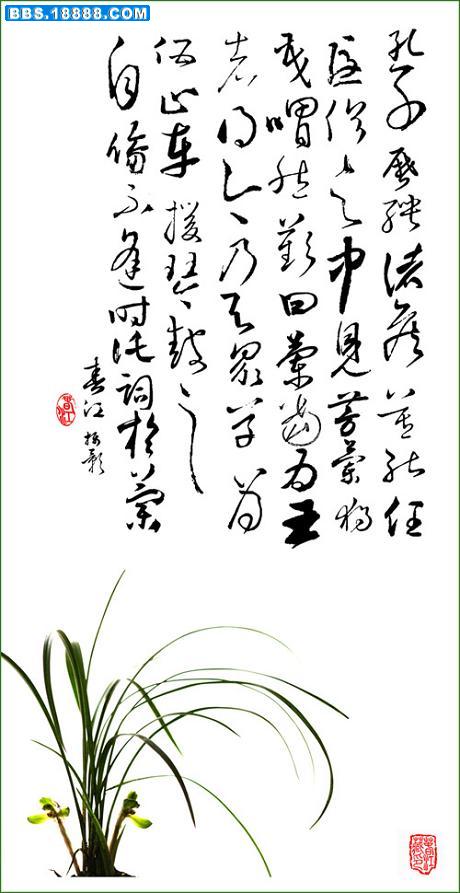 BBS.18888.COM
孔子歷聘諸侯莫能任
隱之中見芳蘭獨
茂喟然歎曰蘭當為王
者乃與眾草為
伍止車援琴鼓之
自傷不逢時託詞於蘭
春江